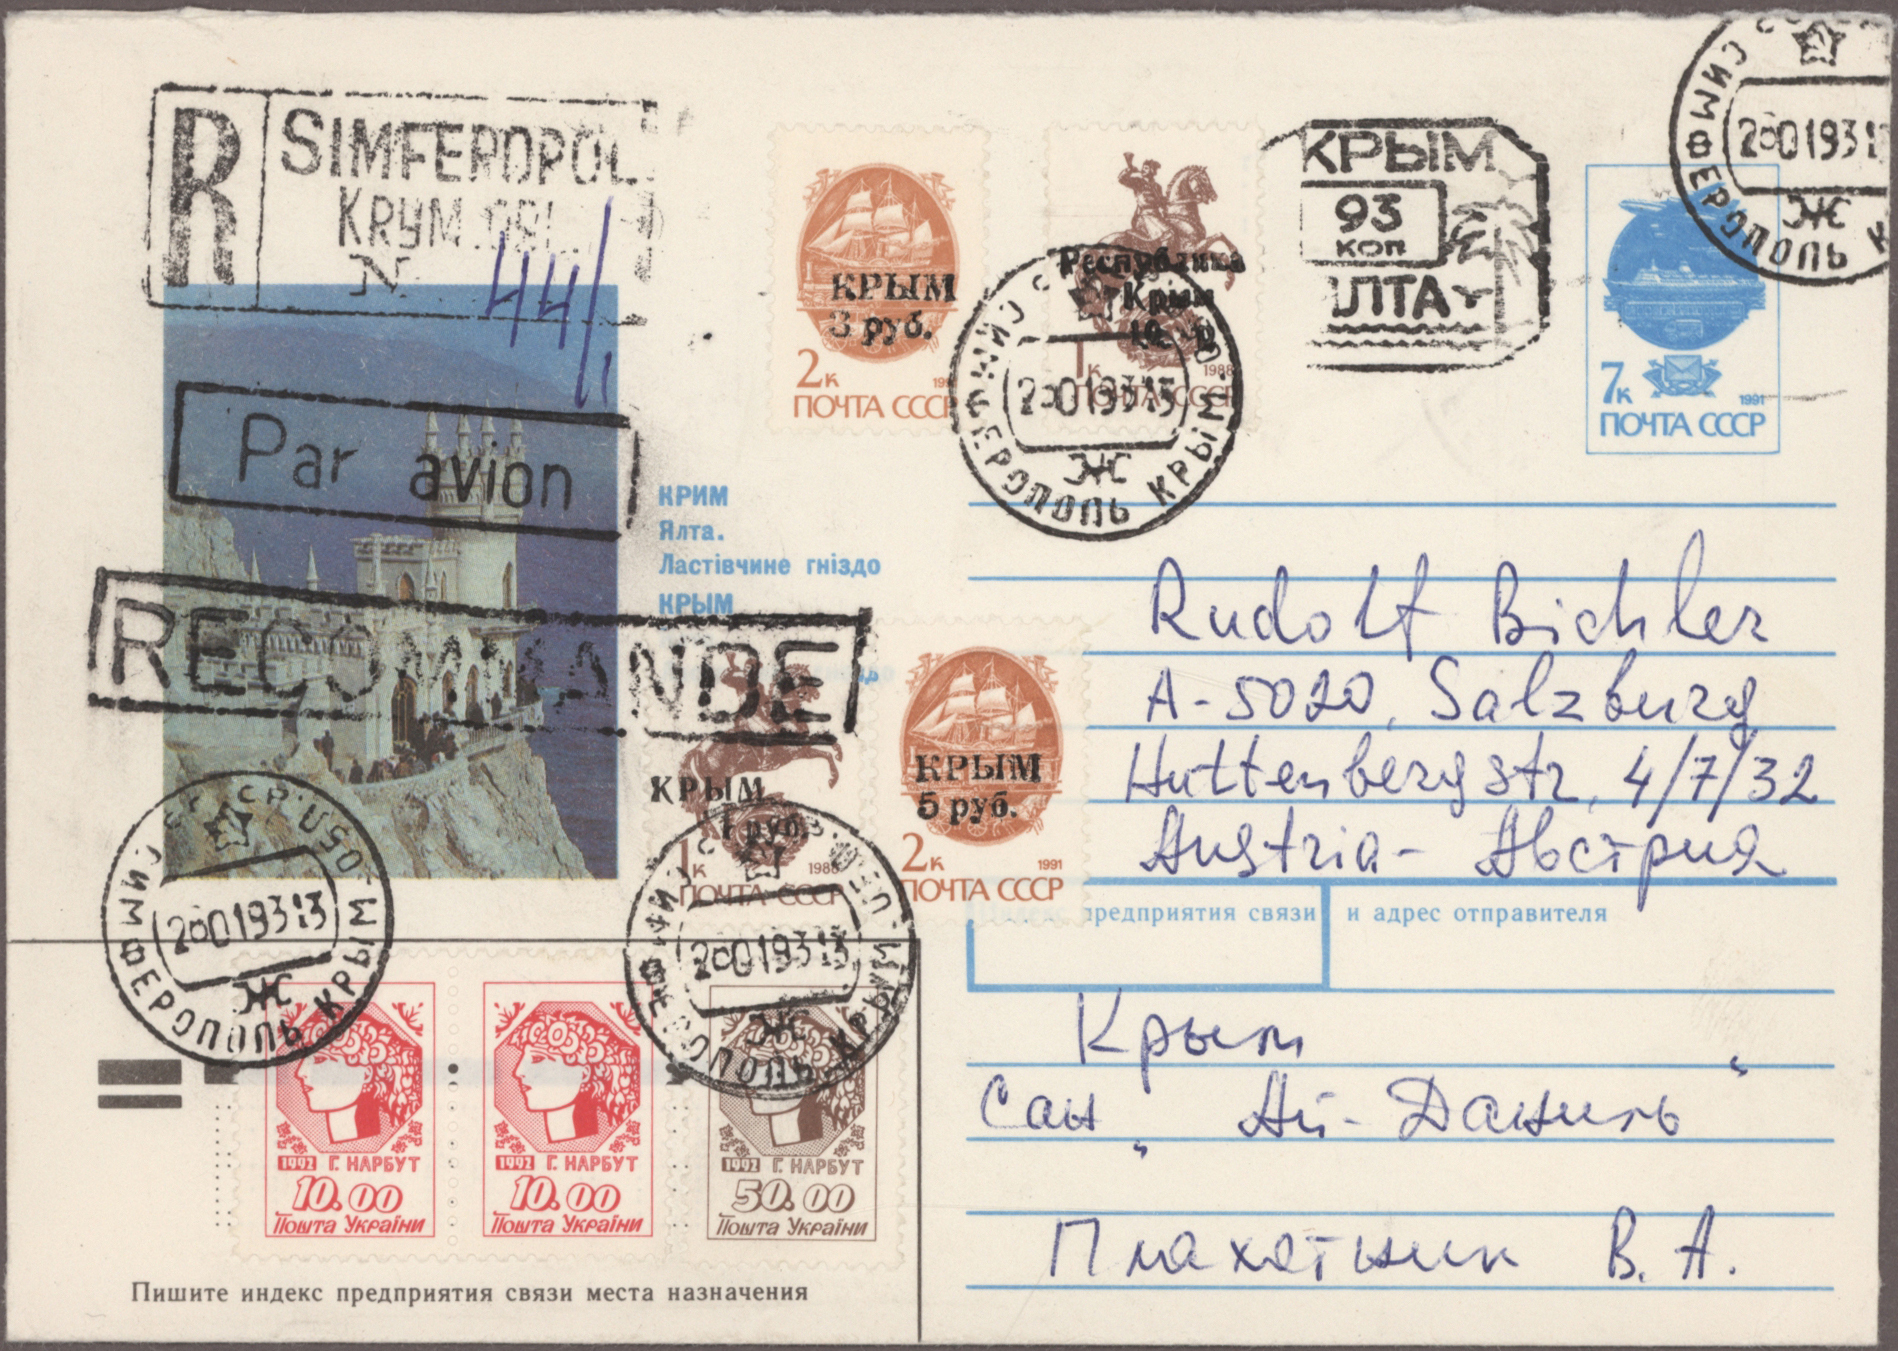 R SIMFEROPOL
KRYM.OBL.
N
КРЫМ
3 руб.
2к
ПОЧТА СССР
Республика
Крым
10
1к 1988
ПОЧТА СССР
КРЫМ
93
коп
ЯЛТА
7к 1991
ПОЧТА СССР
СИМФЕРОПОЛЬ
Ж
СИМФЕРОПОЛЬ КРЫМ
Ж
Par avion
КРИМ
Ялта.
Ластівчине гніздо
КРЫМ
RECOMMANDE
Rudolf Bichler
A-5020, Salzburg
Huttenbergstr, 4/7/32
Austria - Австрия
КРЫМ
1 руб.
1к 1988
ПОЧТА СССР
КРЫМ
5 руб.
2к 1991
ПОЧТА СССР
Индекс предприятия связи и адрес отправителя
СИМФЕРОПОЛЬ КРЫМ
Ж
СИМФЕРОПОЛЬ КРЫМ
Ж
Крым
Сан „Ай-Даниль"
Плахотник В. А.
1992 Г. НАРБУТ
10.00
Пошта України
1992 Г. НАРБУТ
10.00
Пошта України
1992 Г. НАРБУТ
50.00
Пошта України
Пишите индекс предприятия связи места назначения